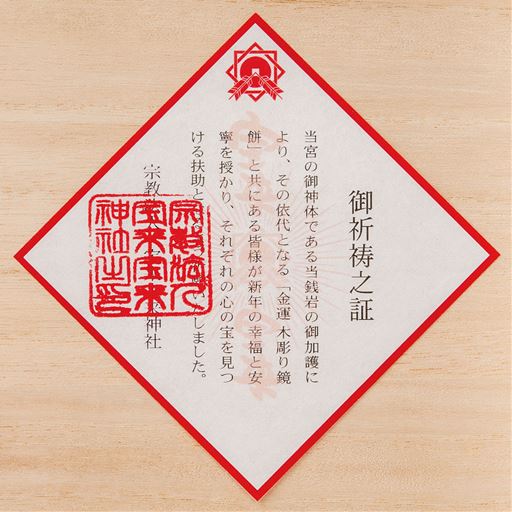 御祈祷之証
当宮の御神体である当銭岩の御加護に
より、その依代となる「金運 木彫り鏡
餅」と共にある皆様が新年の幸福と安
寧を授かり、それぞれの心の宝を見つ
ける扶助と しました。
宗教 神社
宗教法人
宝来宝来
神社之印